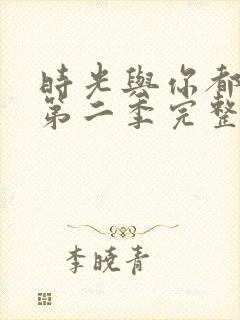 時光與你都
第二季完整
李曉青